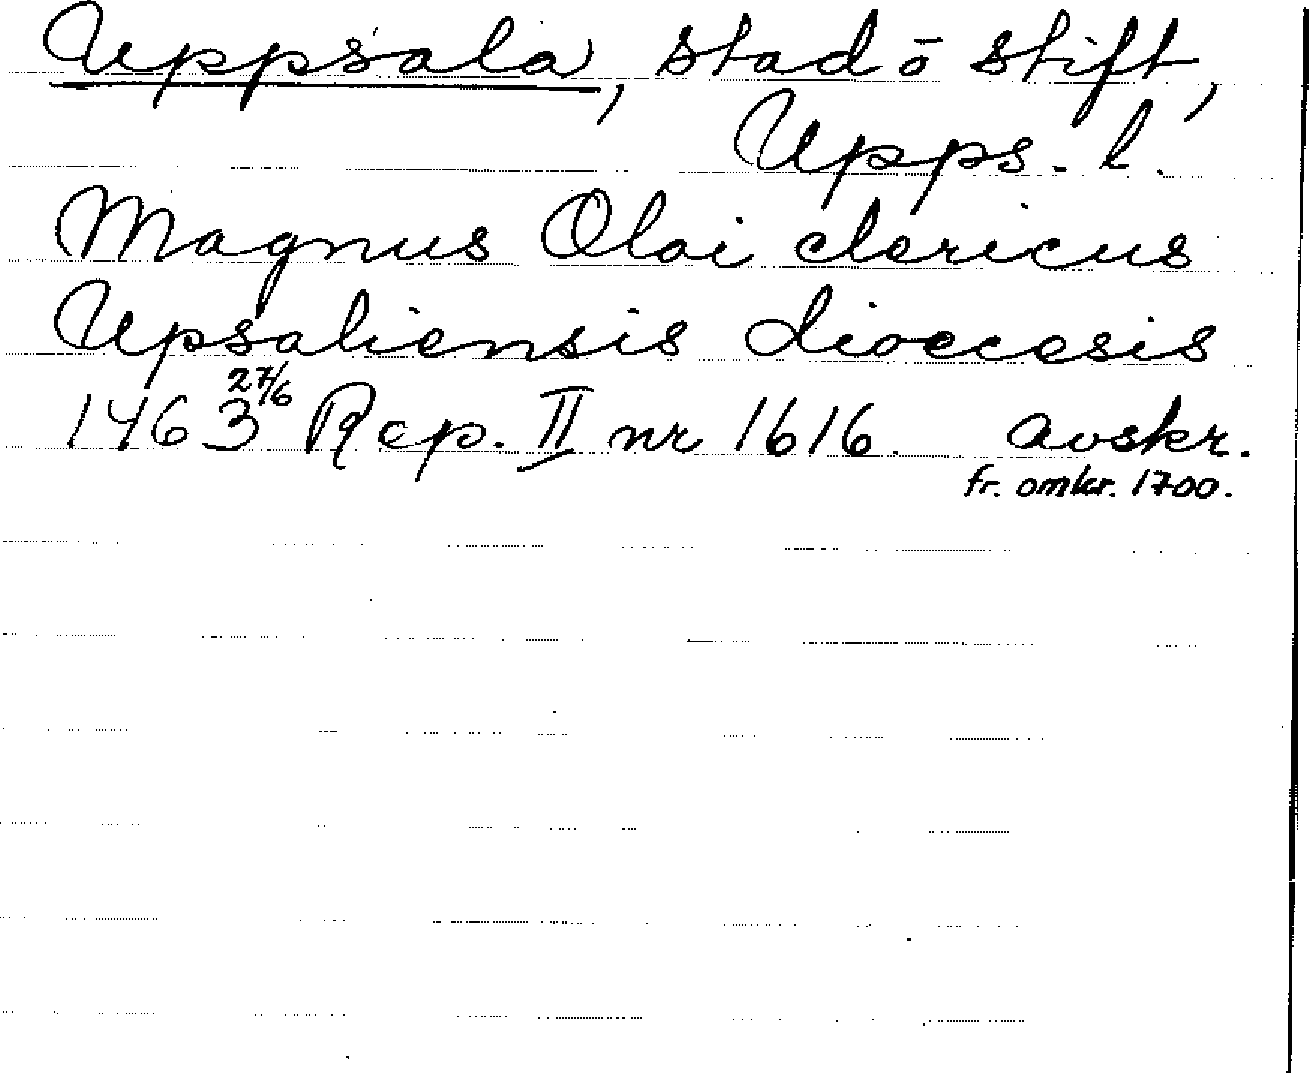 Uppsala, stad ō stift,
Upps. l.
Magnus Olai clericus
Upsaliensis dioecesis
1463 27/6 Rep. II nr 1616. avskr.
fr. omkr. 1700.